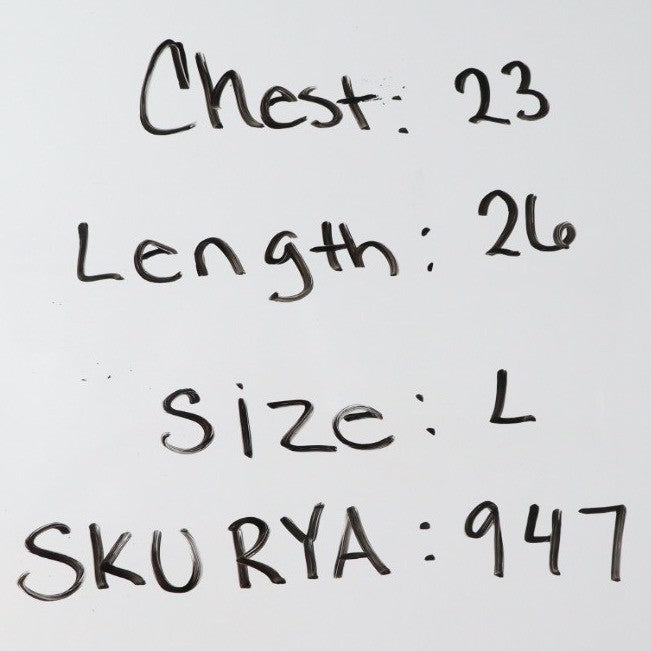 Chest: 23
Length: 26
Size: L
SKU RYA: 947